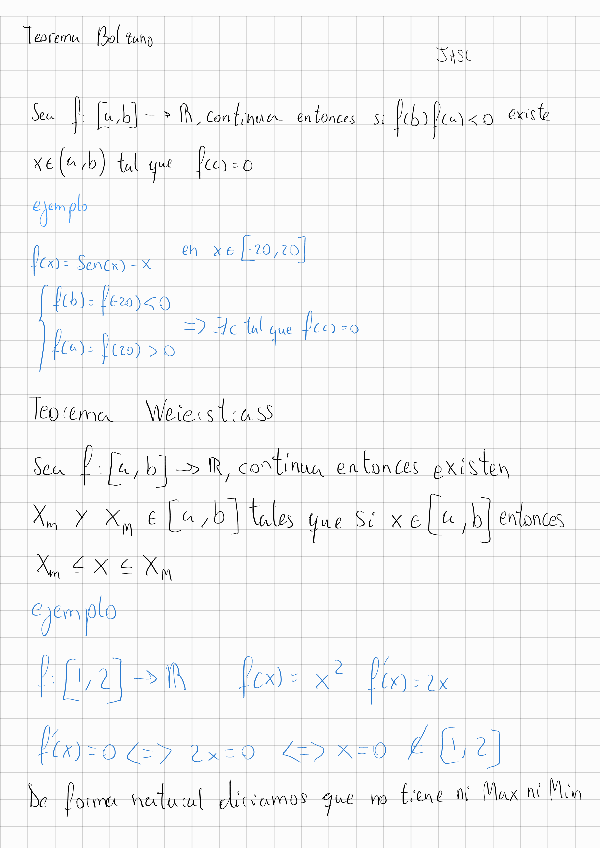 Teorema Bolzano
JASC
Sea f: [a,b] -> ℝ, continua entonces si f(b) f(a) < 0 existe
x ∈ (a,b) tal que f(c) = 0
ejemplo
f(x) = Sen(x) - x en x ∈ [-20,20]
f(b) = f(-20) < 0
=> ∃c tal que f(c) = 0
f(a) = f(20) > 0
Teorema Weierstrass
Sea f: [a,b] -> ℝ, continua entonces existen
Xm y XM ∈ [a,b] tales que si x ∈ [a,b] entonces
Xm ≤ x ≤ XM
ejemplo
f: [1,2] -> ℝ f(x) = x² f'(x) = 2x
f'(x) = 0 <=> 2x = 0 <=> x = 0 ∉ [1,2]
De forma natural diriamos que no tiene ni Max ni Min